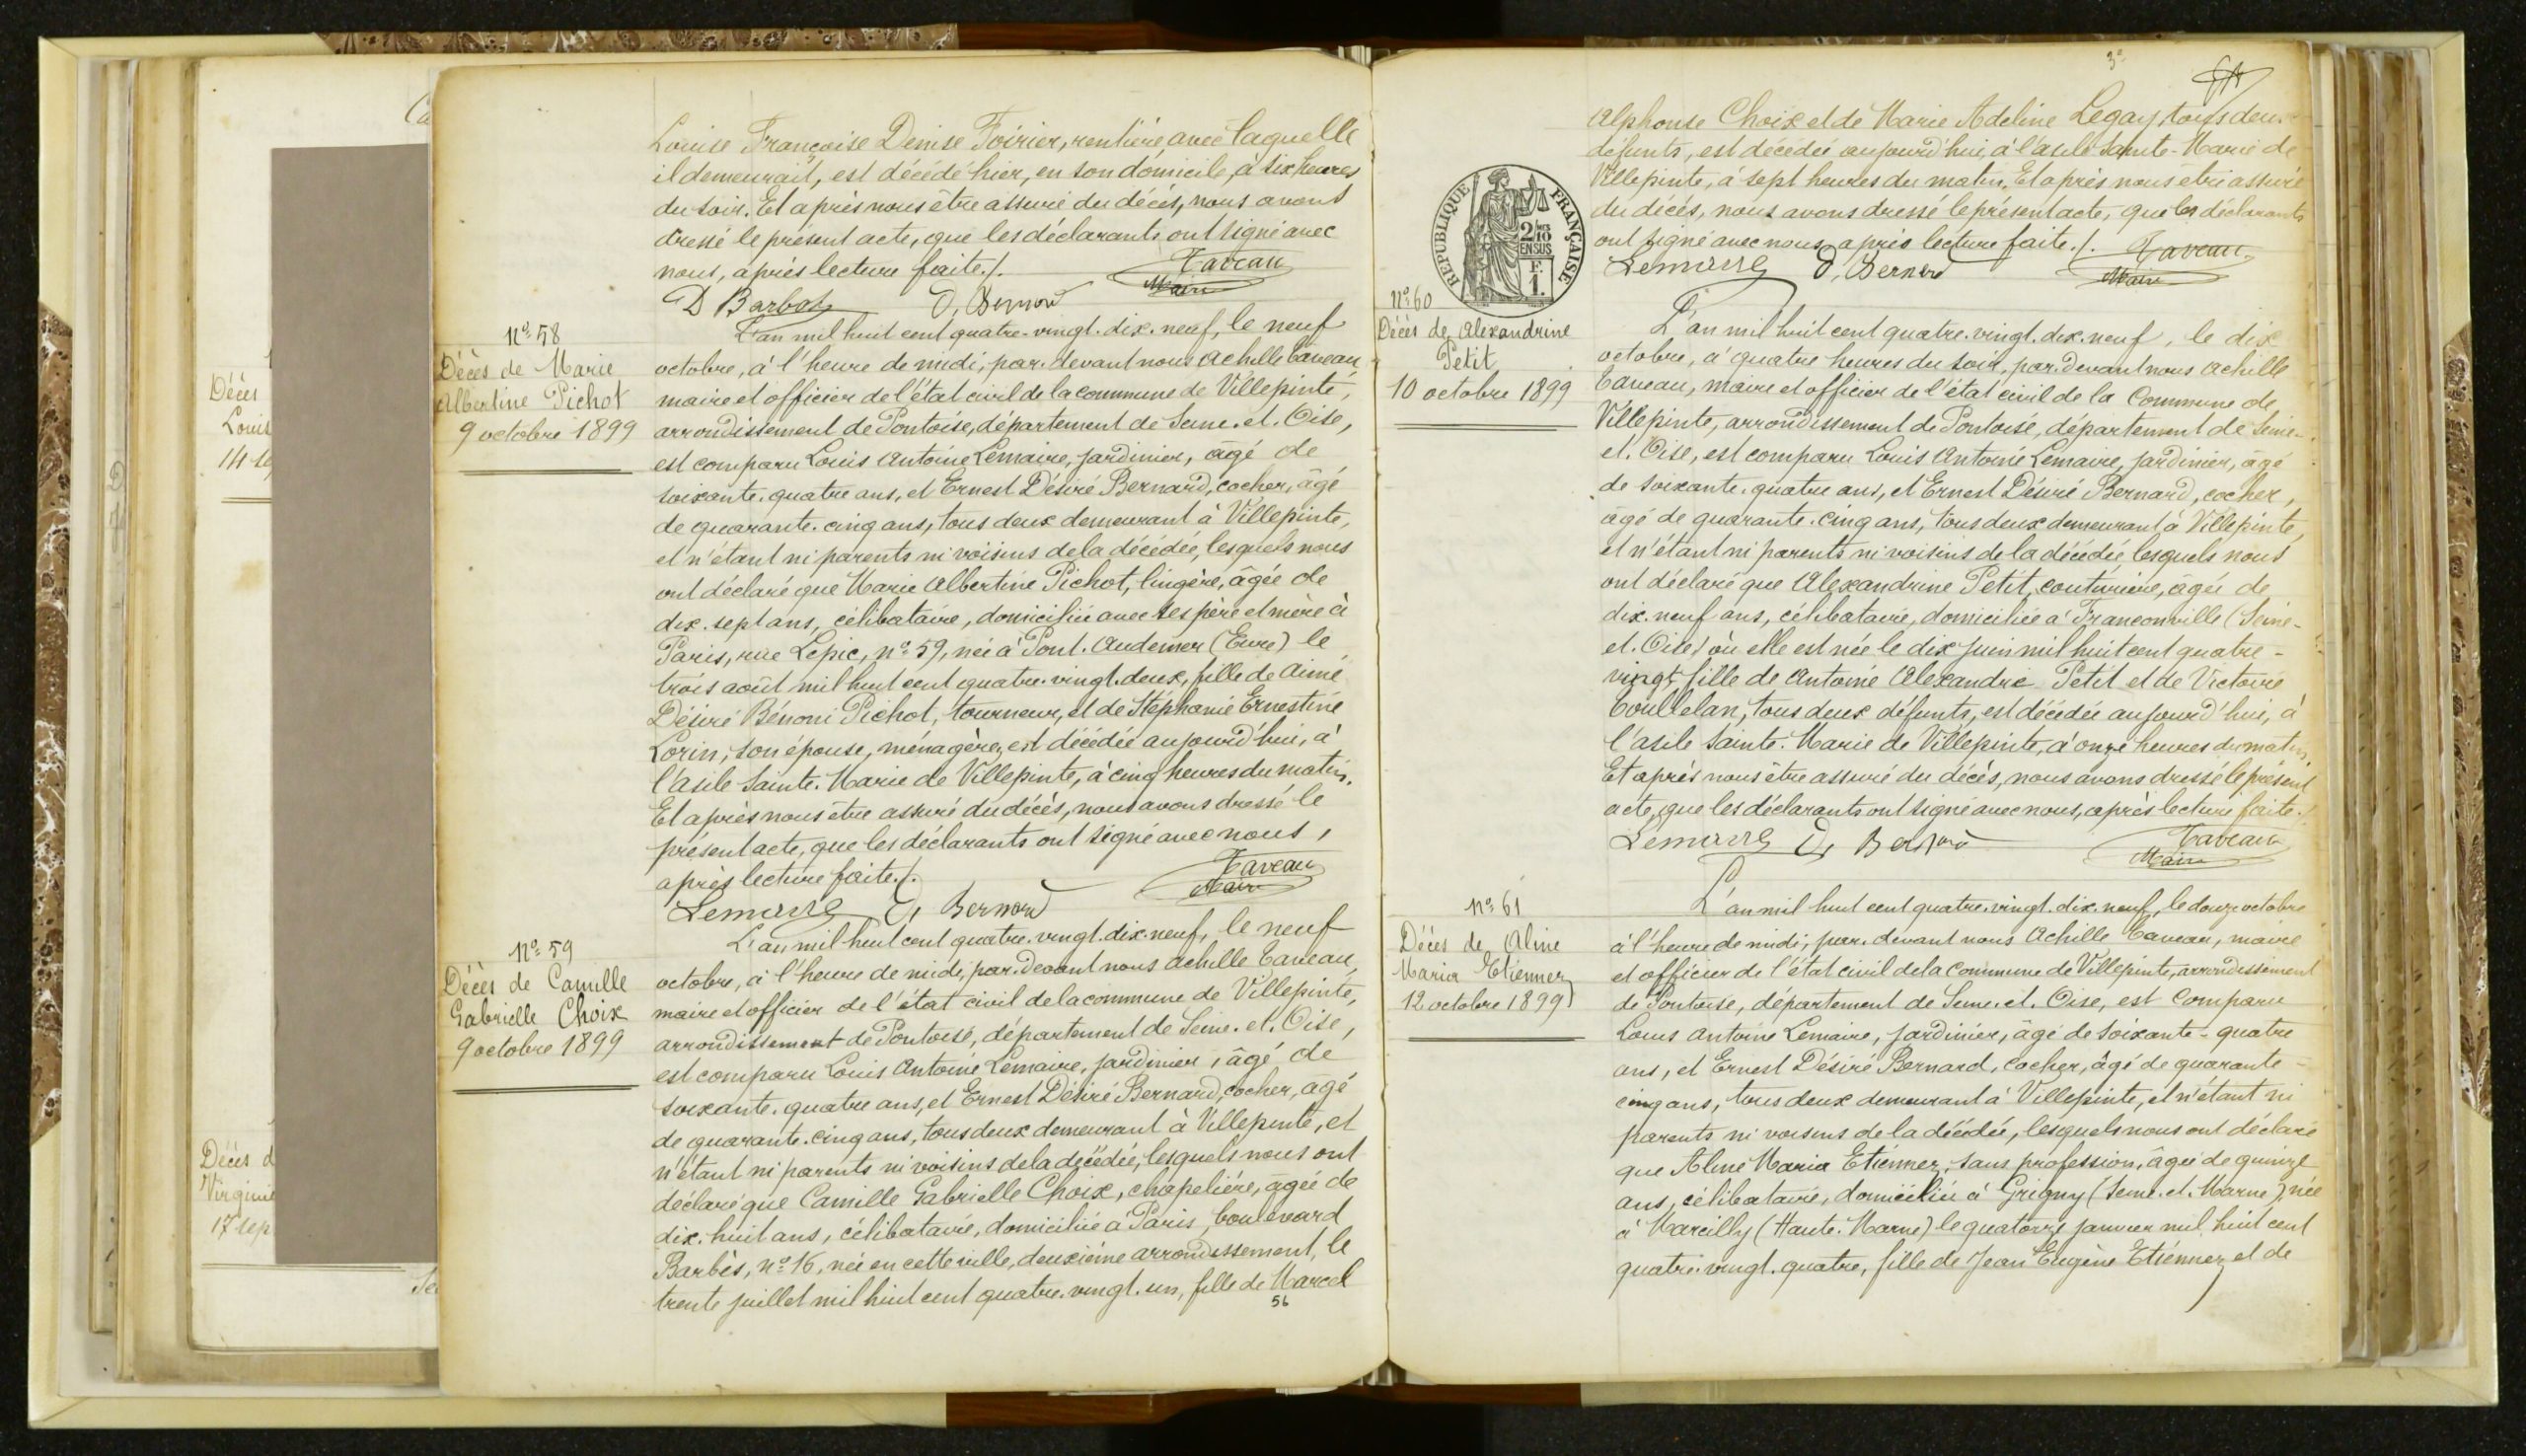 Ca
Décès
Louis
14 se
Décès d
Virginie
17 sep
Louise Françoise Denise Poirier, rentière, avec laquelle
il demeurait, est décédé hier, en son domicile, à six heures
du soir. Et après nous être assuré du décès, nous avons
dressé le présent acte, que les déclarants ont signé avec
nous, après lecture faite./.
Taveau
Maire
D Barbot D, Bernard
N° 58
Décès de Marie
Albertine Pichot
9 octobre 1899
L'an mil huit cent quatre-vingt-dix-neuf, le neuf
octobre, à l'heure de midi, par-devant nous Achille Taveau,
maire et officier de l'état civil de la commune de Villepinte,
arrondissement de Pontoise, département de Seine-et-Oise,
est comparu Louis Antoine Lemaire, jardinier, âgé de
soixante-quatre ans, et Ernest Désiré Bernard, cocher, âgé
de quarante-cinq ans, tous deux demeurant à Villepinte,
et n'étant ni parents ni voisins de la décédée, lesquels nous
ont déclaré que Marie Albertine Pichot, lingère, âgée de
dix-sept ans, célibataire, domiciliée avec ses père et mère à
Paris, rue Lepic, n° 59, née à Pont-Audemer (Eure) le
trois août mil huit cent quatre-vingt-deux, fille de Aimé
Désiré Bénoni Pichot, tourneur, et de Stéphanie Ernestine
Lorin, son épouse, ménagère, est décédée aujourd'hui, à
l'asile Sainte-Marie de Villepinte, à cinq heures du matin.
Et après nous être assuré du décès, nous avons dressé le
présent acte, que les déclarants ont signé avec nous,
après lecture faite./.
Taveau
Maire
Lemaire D, Bernard
N° 59
Décès de Camille
Gabrielle Choix
9 octobre 1899
L'an mil huit cent quatre-vingt-dix-neuf, le neuf
octobre, à l'heure de midi, par-devant nous Achille Taveau,
maire et officier de l'état civil de la commune de Villepinte,
arrondissement de Pontoise, département de Seine-et-Oise,
est comparu Louis Antoine Lemaire, jardinier, âgé de
soixante-quatre ans, et Ernest Désiré Bernard, cocher, âgé
de quarante-cinq ans, tous deux demeurant à Villepinte, et
n'étant ni parents ni voisins de la décédée, lesquels nous ont
déclaré que Camille Gabrielle Choix, chapelière, âgée de
dix-huit ans, célibataire, domiciliée à Paris, boulevard
Barbès, n° 16, née en cette ville, deuxième arrondissement, le
trente juillet mil huit cent quatre-vingt-un, fille de Marcel
56
Alphonse Choix et de Marie Adeline Legay, tous deux
défunts, est décédée aujourd'hui, à l'asile Sainte-Marie de
Villepinte, à sept heures du matin. Et après nous être assuré
du décès, nous avons dressé le présent acte, que les déclarants
ont signé avec nous, après lecture faite./.
Taveau
Maire
Lemaire D, Bernard
REPUBLIQUE FRANÇAISE
2/10
EN SUS
F.
1.
N° 60
Décès de Alexandrine
Petit
10 octobre 1899
L'an mil huit cent quatre-vingt-dix-neuf, le dix
octobre, à quatre heures du soir, par-devant nous Achille
Taveau, maire et officier de l'état civil de la Commune de
Villepinte, arrondissement de Pontoise, département de Seine-
et-Oise, est comparu Louis Antoine Lemaire, jardinier, âgé
de soixante-quatre ans, et Ernest Désiré Bernard, cocher,
âgé de quarante-cinq ans, tous deux demeurant à Villepinte,
et n'étant ni parents ni voisins de la décédée lesquels nous
ont déclaré que Alexandrine Petit, couturière, âgée de
dix-neuf ans, célibataire, domiciliée à Franconville (Seine-
et-Oise) où elle est née le dix juin mil huit cent quatre-
vingt, fille de Antoine Alexandre Petit et de Victoire
Coullelan, tous deux défunts, est décédée aujourd'hui, à
l'asile Sainte-Marie de Villepinte, à onze heures du matin,
Et après nous être assuré du décès, nous avons dressé le présent
acte, que les déclarants ont signé avec nous, après lecture faite./
Lemaire D, Bernard
Taveau
Maire
N° 61
Décès de Aline
Maria Etiennez
12 octobre 1899
L'an mil huit cent quatre-vingt-dix-neuf, le douze octobre
à l'heure de midi, par-devant nous Achille Taveau, maire
et officier de l'état civil de la Commune de Villepinte, arrondissement
de Pontoise, département de Seine-et-Oise, est Comparu
Louis Antoine Lemaire, jardinier, âgé de soixante-quatre
ans, et Ernest Désiré Bernard, Cocher, âgé de quarante-
cinq ans, tous deux demeurant à Villepinte, et n'étant ni
parents ni voisins de la décédée, lesquels nous ont déclaré
que Aline Maria Etiennez, sans profession, âgée de quinze
ans, célibataire, domiciliée à Grigny (Seine-et-Marne), née
à Marcilly (Haute-Marne) le quatorze janvier mil huit cent
quatre-vingt-quatre, fille de Jean Eugène Etiennez et de